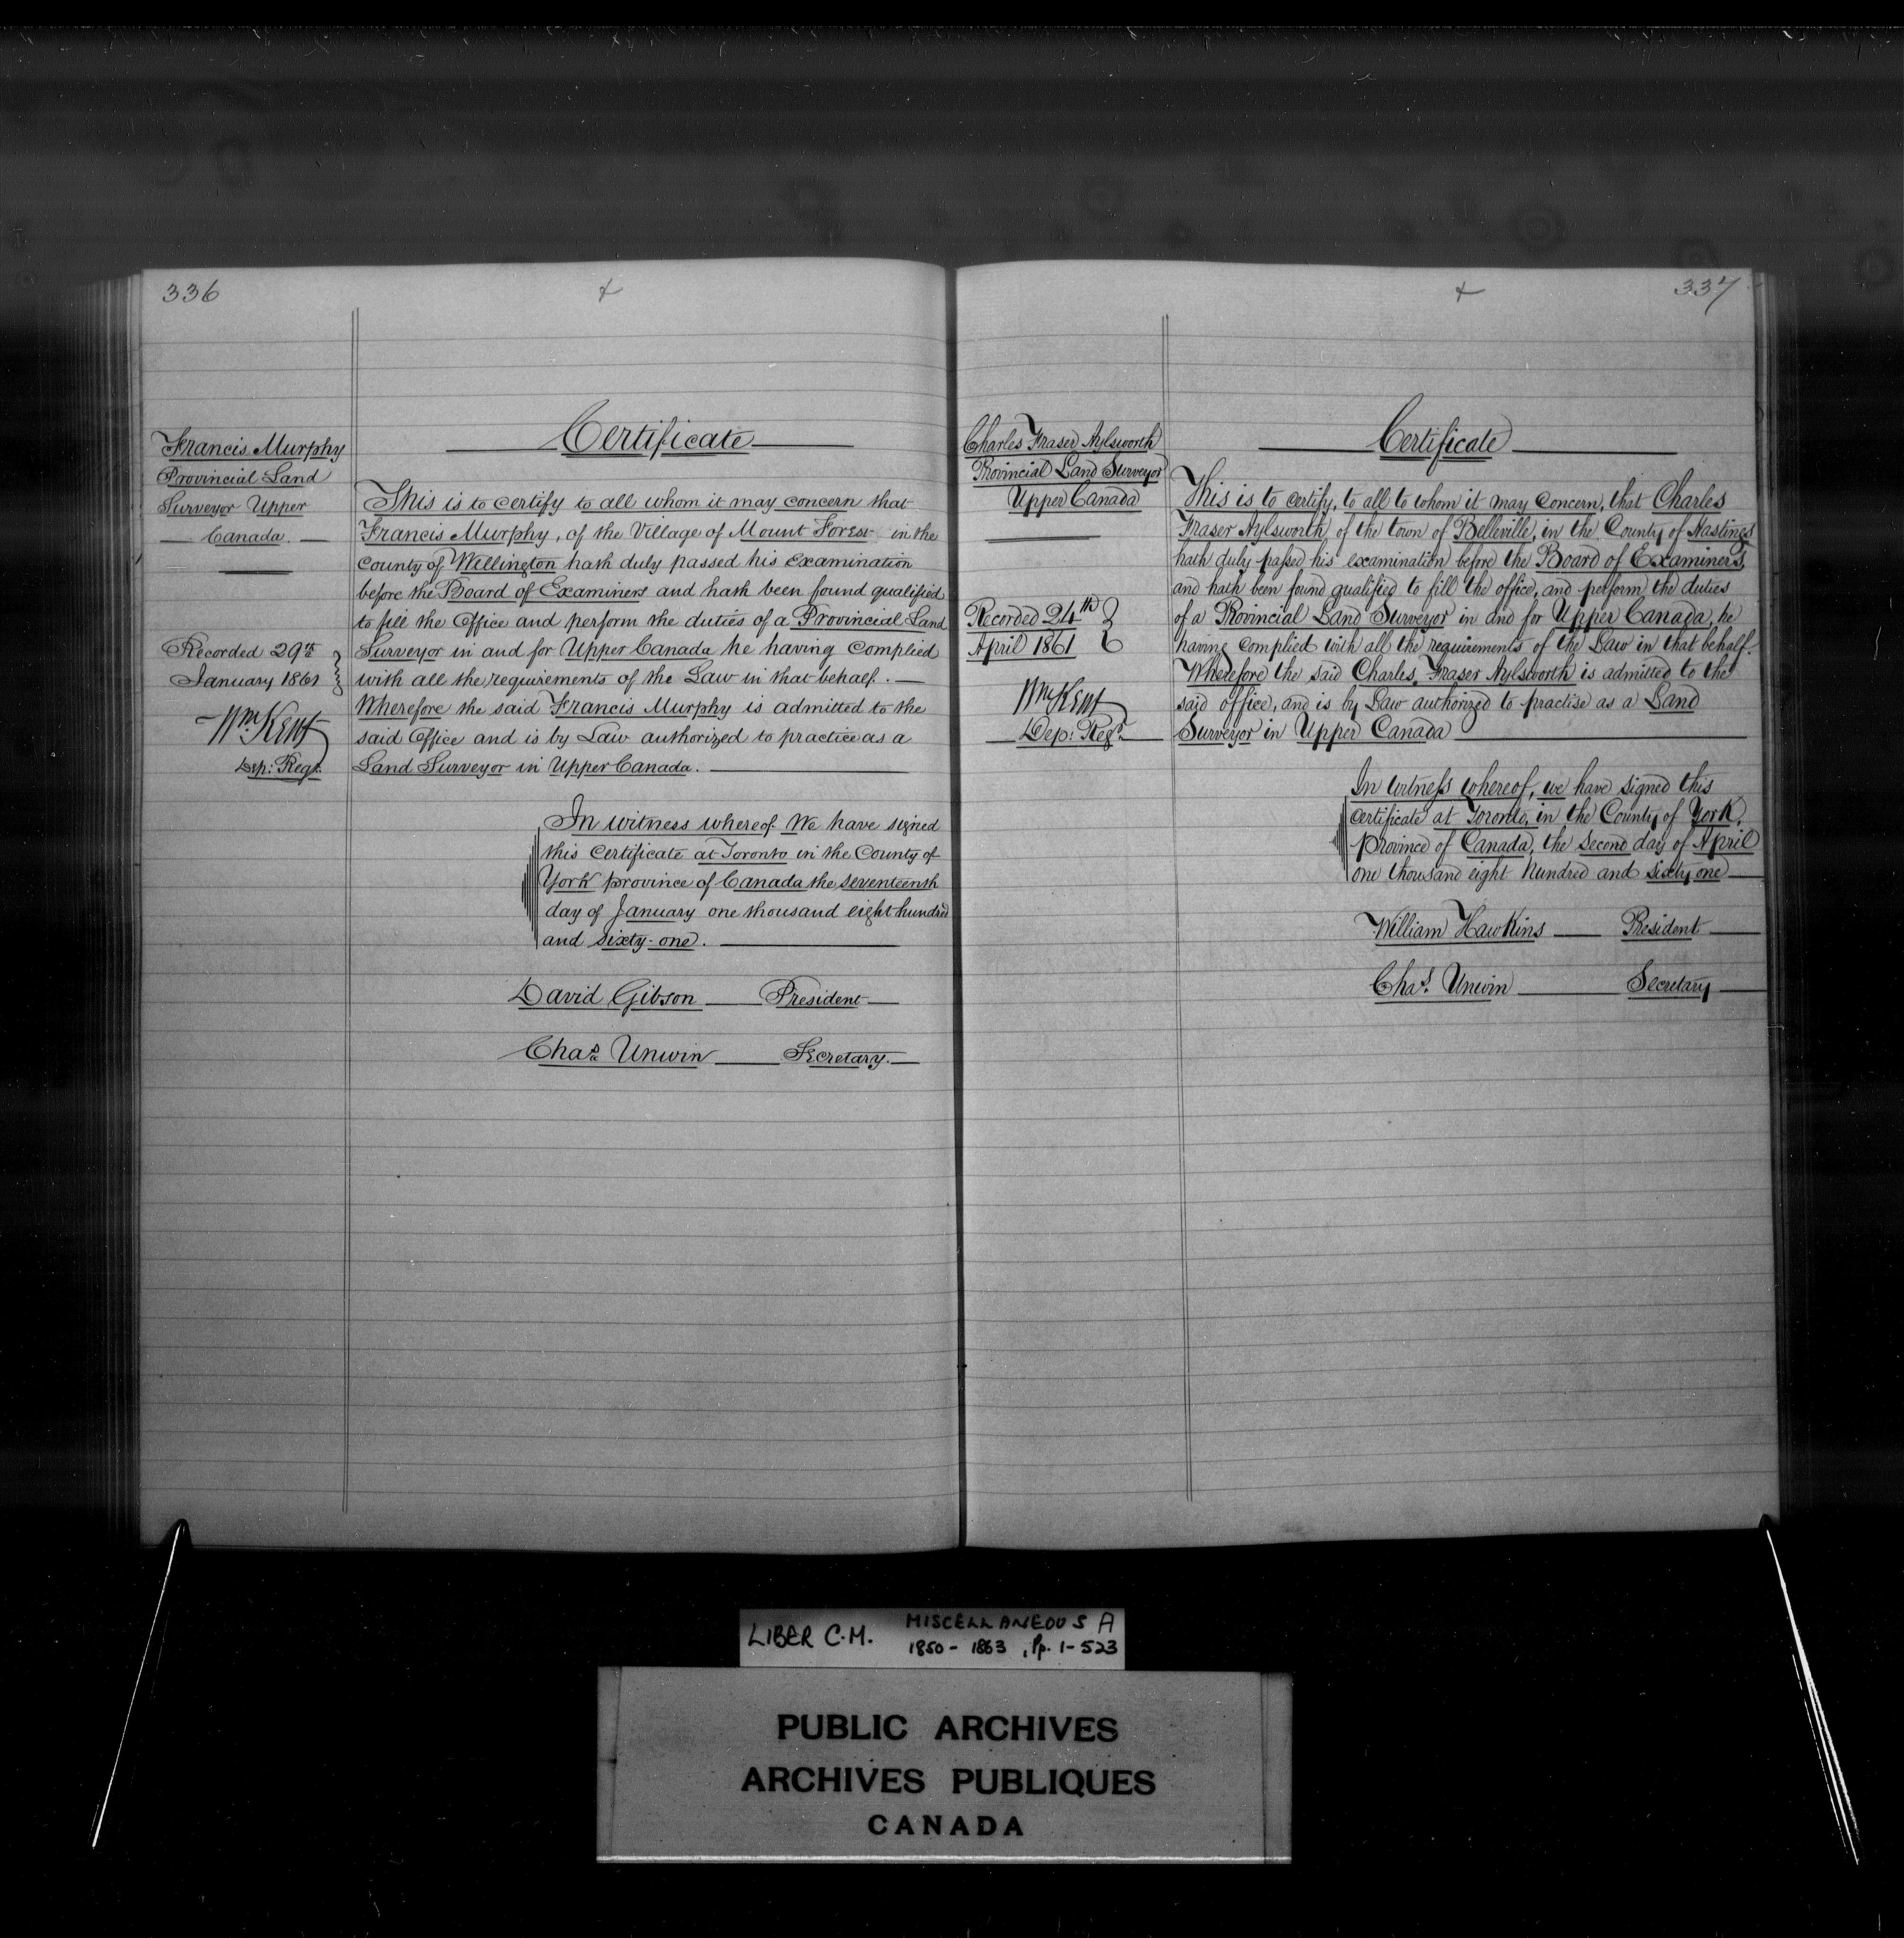 336
Francis Murphy
Provincial Land
Surveyor Upper
Canada.
Recorded 29th
January 1861
Wm. Kent
Dep: Regr.
Certificate
This is to certify to all whom it may concern that
Francis Murphy, of the Village of Mount Forest in the
county of Wellington hath duly passed his examination
before the Board of Examiners and hath been found qualified
to fill the Office and perform the duties of a Provincial Land
Surveyor in and for Upper Canada he having complied
with all the requirements of the Law in that behalf.
Wherefore the said Francis Murphy is admitted to the
said Office and is by Law authorized to practice as a
Land Surveyor in Upper Canada.
In witness whereof We have signed
this Certificate at Toronto in the County of
York province of Canada the seventeenth
day of January one thousand eight hundred
and sixty-one.
David Gibson President
Chas. Unwin Secretary.
337
Charles Fraser Aylsworth
Provincial Land Surveyor
Upper Canada
Recorded 24th
April 1861
Wm Kent
Dep: Regr.
Certificate
This is to certify, to all to whom it may concern, that Charles
Fraser Aylsworth, of the town of Belleville, in the County of Hastings
hath duly passed his examination before the Board of Examiners,
and hath been found qualified to fill the office, and perform the duties
of a Provincial Land Surveyor in and for Upper Canada, he
having complied with all the requirements of the Law in that behalf.
Wherefore the said Charles Fraser Aylsworth is admitted to the
said office, and is by Law authorized to practise as a Land
Surveyor in Upper Canada
In witness whereof, we have signed this
certificate at Toronto, in the County of York,
province of Canada, the second day of April
one thousand eight hundred and sixty one
William Hawkins President
Chas. Unwin Secretary
LIBER C.M. MISCELLANEOUS A
1850-1863, Pp. 1-523
PUBLIC ARCHIVES
ARCHIVES PUBLIQUES
CANADA